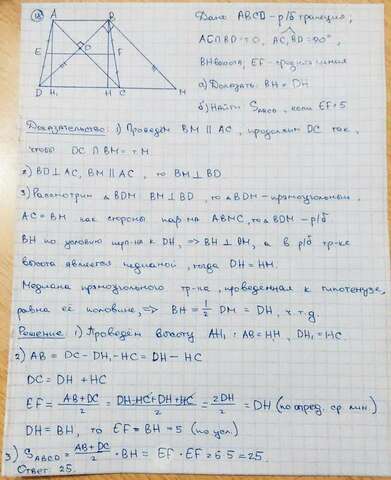 A B
Дано: ABCD – р/б трапеция,
O
AC∩BD = O, AC, BD = 90°,
E F
BH высота, EF – средняя линия
D H₁ H C M
а) Доказать: BH = DH
б) Найти S ABCD, если EF = 5
Доказательство: 1) Проведем BM ∥ AC, продолжим DC так,
чтобы DC ∩ BM = т. M
2) BD ⊥ AC, BM ∥ AC, то BM ⊥ BD.
3) Рассмотрим △ BDM BM ⊥ BD, то △ BDM – прямоугольным.
AC = BM как стороны пар-ма ABMC, то △ BDM – р/б
BH по условию пер-на к DH, => BH ⊥ DM, а в р/б тр-ке
высота является медианой, тогда DH = HM.
Медиана прямоугольного тр-ка, проведенная к гипотенузе,
равна её половине, => BH = 1/2 DM = DH, ч.т.д.
Решение: 1) Проведем высоту AH₁ : AB = HH, DH₁ = HC.
2) AB = DC - DH₁ - HC = DH - HC
DC = DH + HC
EF = AB+DC/2 = DH-HC+DH+HC/2 = 2DH/2 = DH (по опред. ср. лин)
DH = BH, то EF = BH = 5 (по усл.)
3) S ABCD = AB+DC/2 · BH = EF · EF = 5·5 = 25.
Ответ: 25.